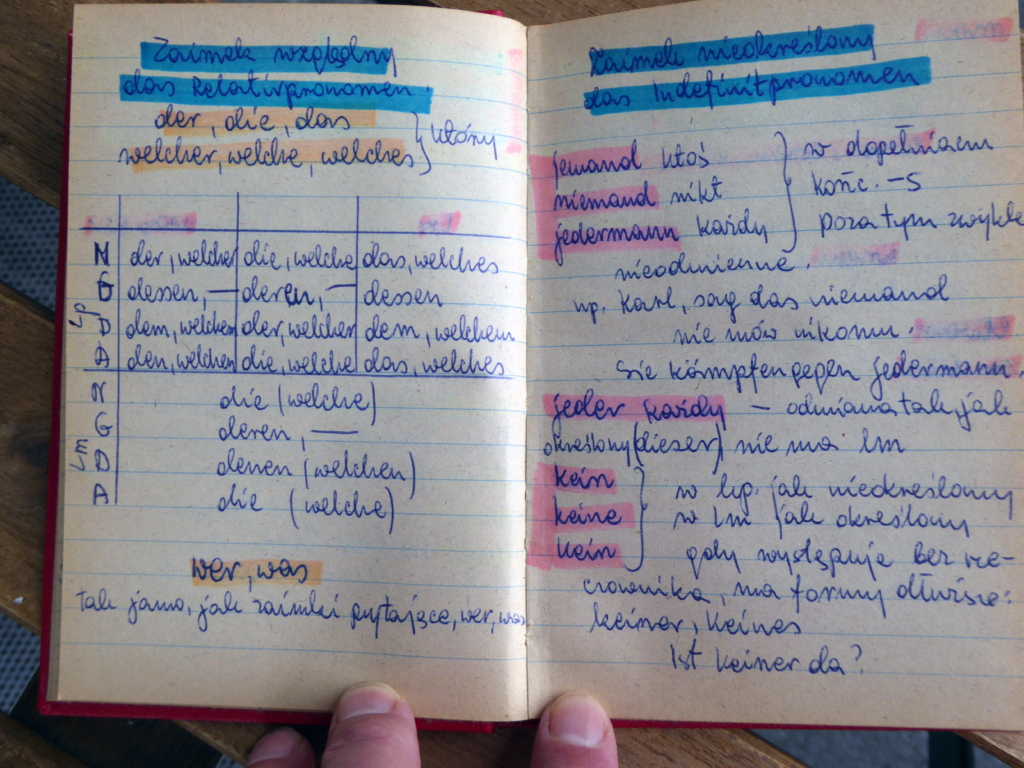 Zaimek względny
das Relativpronomen.
der, die, das
welcher, welche, welches } który
N der, welcher die, welche das, welches
G dessen, — deren, — dessen
D dem, welchem der, welcher dem, welchem
A den, welchen die, welche das, welches
Lp
N die (welche)
G deren, —
D denen (welchen)
A die (welche)
Lm
wer, was
tak samo, jak zaimki pytające, wer, was
Zaimek nieokreślony
das Indefinitpronomen
jemand ktoś } w dopełniaczu
niemand nikt końc. -s
jedermann każdy poza tym zwykle
nieodmienne.
np. Karl, sag das niemand
nie mów nikomu.
Sie kämpfen gegen jedermann.
jeder każdy — odmiana tak jak
określony (dieser) nie ma lm
kein } w lp. jak nieokreślony
keine w lm jak określony
kein gdy występuje bez rze-
czownika, ma formy
keiner, keines
Ist keiner da?